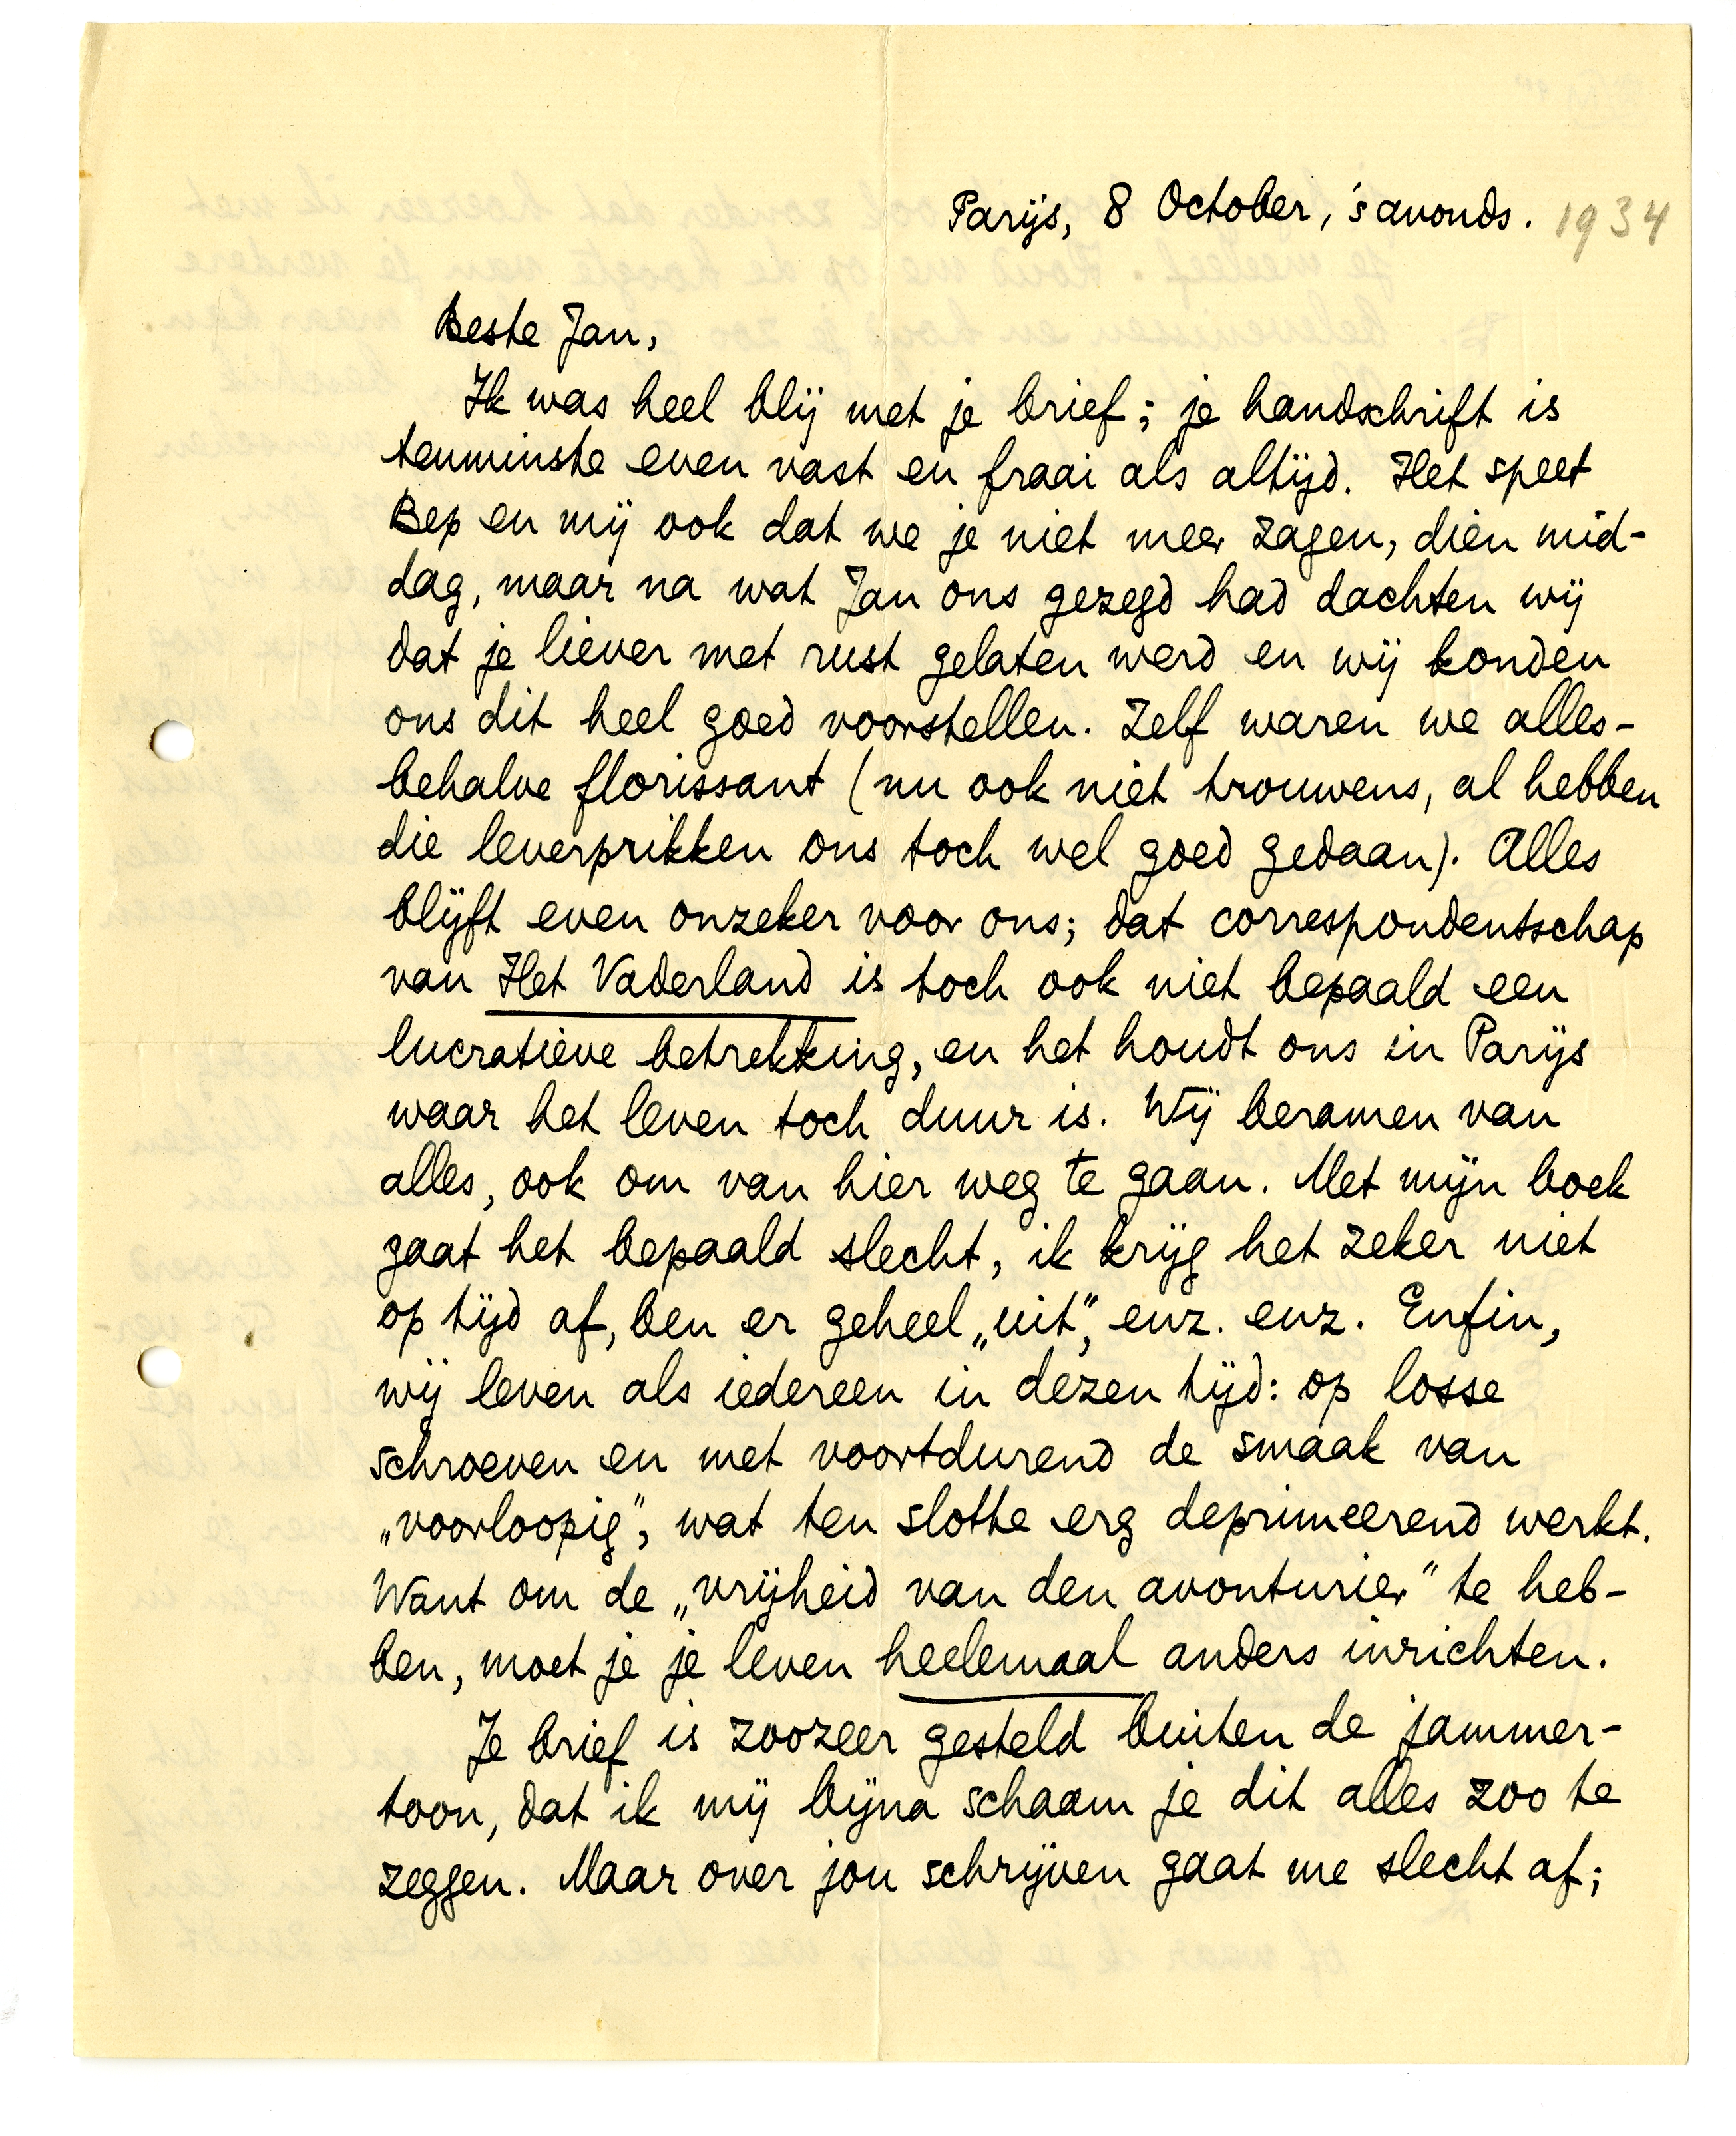 Parijs, 8 October, 's avonds. 1934
Beste Jan,
Ik was heel blij met je brief; je handschrift is
tenminste even vast en fraai als altijd. Het speet
Bep en mij ook dat we je niet meer zagen, dien mid-
dag, maar na wat Jan ons gezegd had dachten wij
dat je liever met rust gelaten werd en wij konden
ons dit heel goed voorstellen. Zelf waren we alles-
behalve florissant (nu ook niet trouwens, al hebben
die leverprikken ons toch wel goed gedaan). Alles
blijft even onzeker voor ons; dat correspondentschap
van Het Vaderland is toch ook niet bepaald een
lucratieve betrekking, en het houdt ons in Parijs
waar het leven toch duur is. Wij beramen van
alles, ook om van hier weg te gaan. Met mijn boek
gaat het bepaald slecht, ik krijg het zeker niet
op tijd af, ben er geheel „uit”, enz. enz. Enfin,
wij leven als iedereen in dezen tijd: op losse
schroeven en met voortdurend de smaak van
„voorloopig”, wat ten slotte erg deprimeerend werkt.
Want om de „vrijheid van den avonturier” te heb-
ben, moet je je leven heelemaal anders inrichten.
Je brief is zoozeer gesteld buiten de jammer-
toon, dat ik mij bijna schaam je dit alles zoo te
zeggen. Maar over jou schrijven gaat me slecht af;